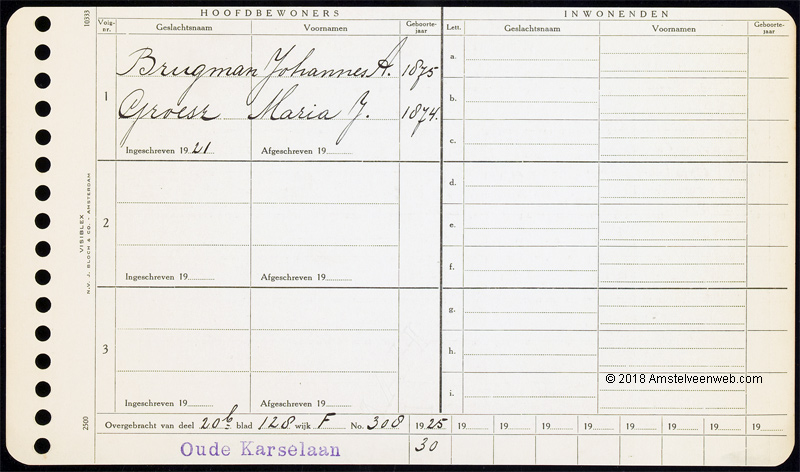 HOOFDBEWONERS INWONENDEN
Volg-nr. Geslachtsnaam Voornamen Geboorte-jaar Lett. Geslachtsnaam Voornamen Geboorte-jaar
1
Brugman Johannes A. 1875
Groesz Maria J. 1874.
Ingeschreven 1921 Afgeschreven 19
a.
b.
c.
2
Ingeschreven 19 Afgeschreven 19
d.
e.
f.
3
Ingeschreven 19 Afgeschreven 19
g.
h.
i.
© 2018 Amstelveenweb.com
Overgebracht van deel 20b blad 128 wijk F No. 308 1925 19 19 19 19 19 19 19 19
Oude Karselaan 30
10333
VISIBLEX
N.V. J. BLOCH & CO. - AMSTERDAM
2500